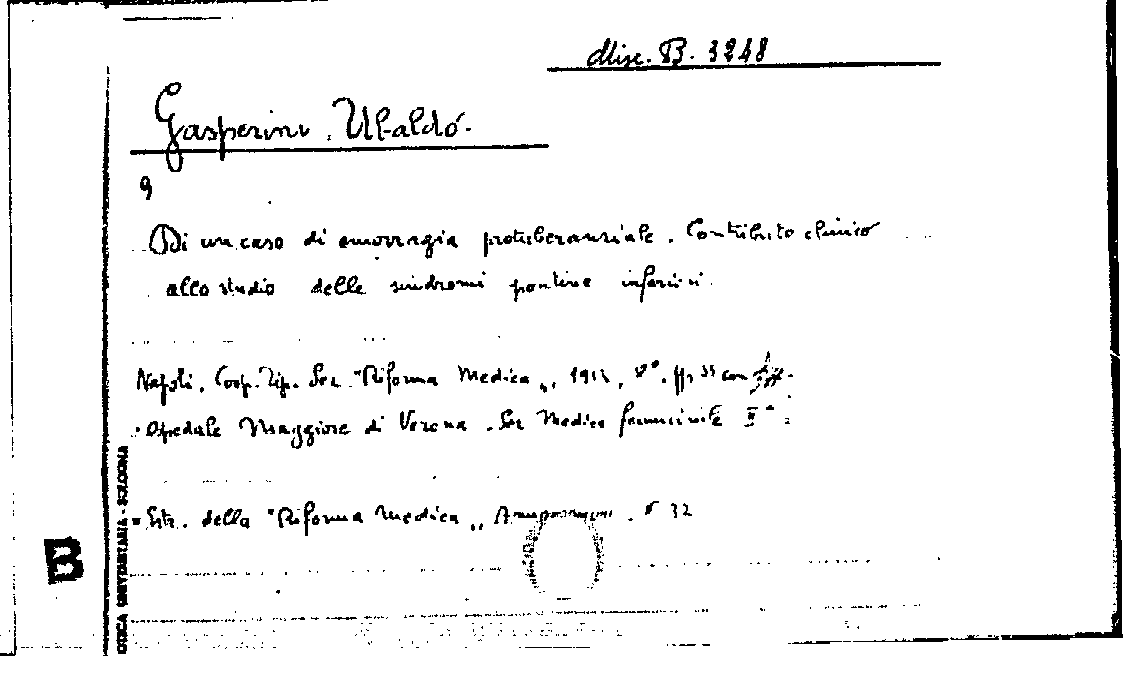 Misc. B. 3248
Gasperini, Ubaldo.
9
Di un caso di emorragia protuberanziale. Contributo clinico
allo studio delle sindromi pontine inferiori.
Napoli, Coop. Tip. "Riforma Medica", 8°. pp. 33 con
Ospedale Maggiore di Verona. Medico femminile II°
Estr. della "Riforma Medica", 32
B
UNIVERSITARIA - BOLOGNA